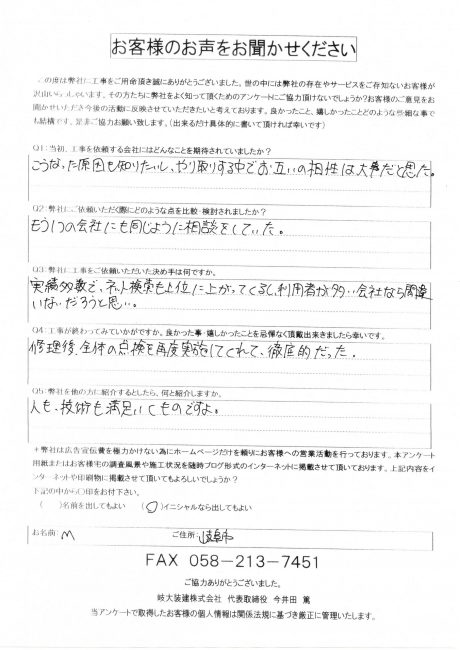 お客様のお声をお聞かせください
この度は弊社に工事をご用命頂き誠にありがとうございました。世の中には弊社の存在やサービスをご存知ないお客様が
沢山いらっしゃいます。その方たちに弊社をよく知って頂くためのアンケートにご協力頂けないでしょうか?お客様のご意見をお
聞かせいただき今後の活動に反映させていただきたいと考えております。良かったこと、嬉しかったことどのような些細な事で
も結構です、是非ご協力お願い致します。(出来るだけ具体的に書いて頂ければ幸いです)
Q1:当初、工事を依頼する会社にはどんなことを期待されていましたか?
こうなった原因も知りたいし、やり取りする中でお互いの相性は大事だと思た。
Q2:弊社にご依頼いただく際にどのような点を比較・検討されましたか?
もう1つの会社にも同じように相談をしていた。
Q3:弊社に工事をご依頼いただいた決め手は何ですか。
実績多数で、ネット検索も上位に上がってくるし、利用者が多い会社なら間違
いないだろうと思い。
Q4:工事が終わってみていかがですか。良かった事・嬉しかったことを忌憚なく頂戴出来きましたら幸いです。
修理後、全体の点検を再度実施してくれて、徹底的だった。
Q5:弊社を他の方に紹介するとしたら、何と紹介しますか。
人も、技術も満足いくものですよ。
+弊社は広告宣伝費を極力かけない為にホームページだけを頼りにお客様への営業活動を行っております。本アンケート
用紙またはお客様宅の調査風景や施工状況を随時ブログ形式のインターネットに掲載させて頂いております。上記内容をイ
ンターネットや印刷物に掲載させて頂いてもよろしいでしょうか?
下記の中から○印をお付下さい。
( )名前を出してもよい (○)イニシャルなら出してもよい
お名前: M ご住所: 岐阜市
FAX 058-213-7451
ご協力ありがとうございました。
岐大装建株式会社 代表取締役 今井田 篤
当アンケートで取得したお客様の個人情報は関係法規に基づき厳正に管理いたします。